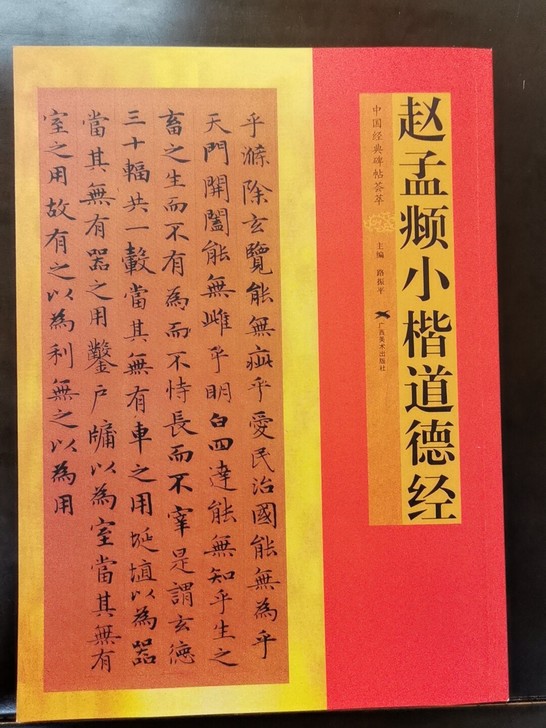 赵孟𫖯小楷道德经
中国经典碑帖荟萃
主编 路振平
广西美术出版社
乎滌除玄覽能無疵乎愛民治國能無為乎
天門開闔能無雌乎明白四達能無知乎生之
畜之生而不有為而不恃長而不宰是謂玄德
三十輻共一轂當其無有車之用埏埴以為器
當其無有器之用鑿戶牖以為室當其無有
室之用故有之以為利無之以為用